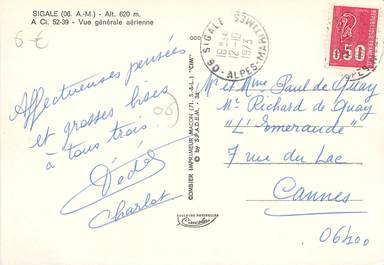 SIGALE (06. A.-M.) - Alt. 620 m.
A Ci. 52-39 - Vue générale aérienne
6 €
Affectueuses pensées
et grosses bises
à tous trois.
06
Dédé
Charlot
COMBIER IMPRIMEUR MACON (71. S.-&-L.) "CIM"
© by S.P.A.D.E.M.
COULEURS NATURELLES
Cimcolor
SIGALE
16H30
12-10
1973
06-ALPES-MARITIMES
0,50
Mr et Mme Paul de Guay
Mr Richard de Guay
"L'Emeraude"
7 rue du Lac
Cannes
06400